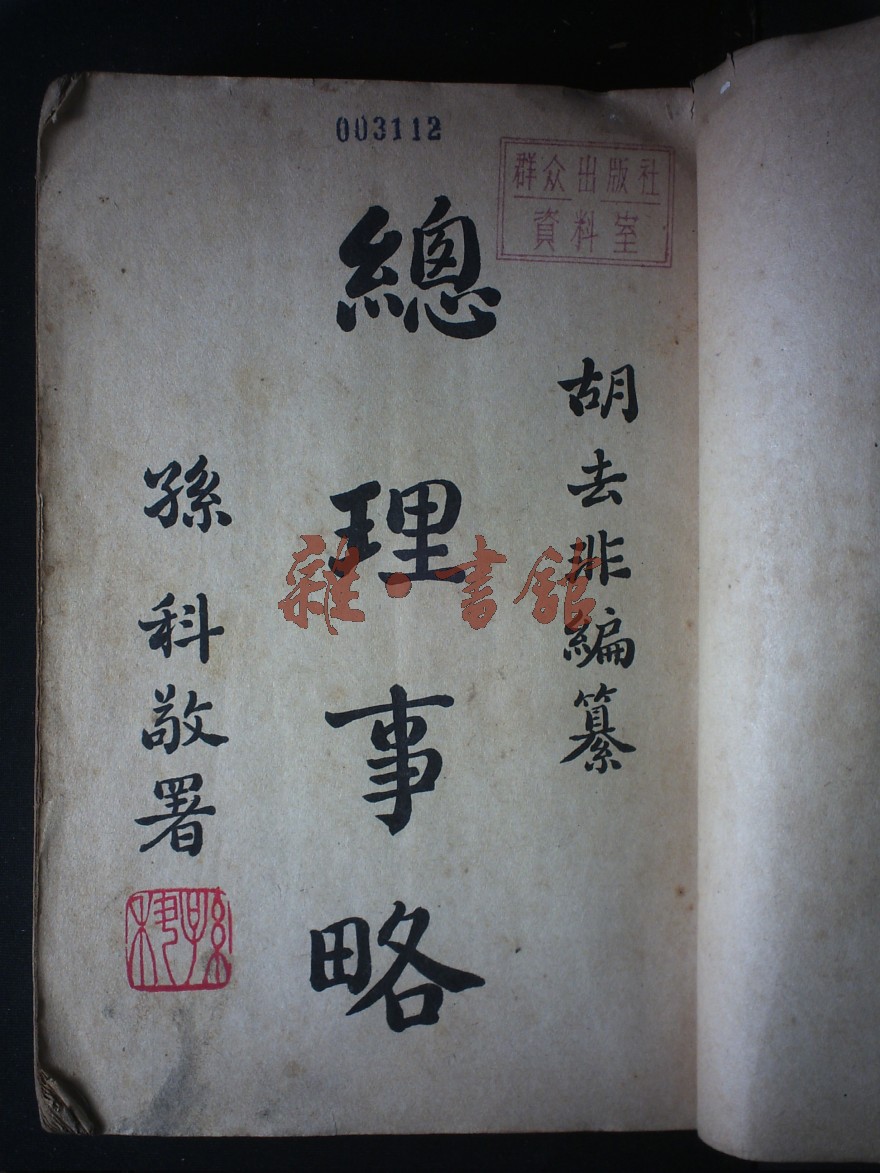 003112
群众出版社
資料室
胡去非編纂
總理事略
孫科敬署
孫科
雜·書館